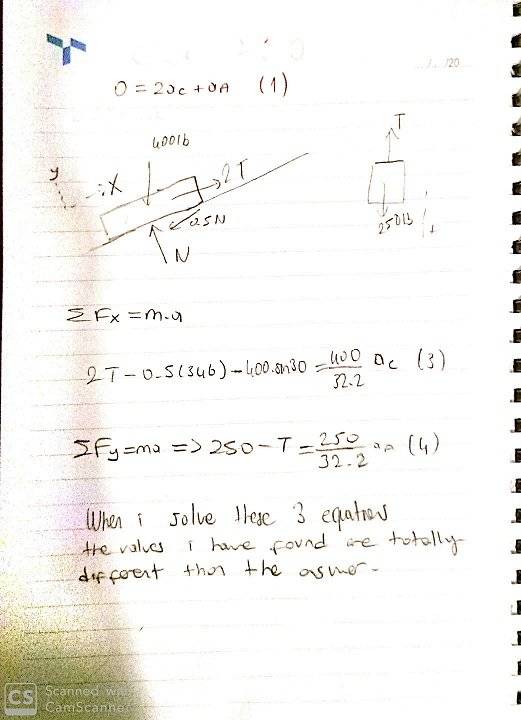 ../../20
0 = 2ac + aA (1)
400lb
T
y
X
2T
.25N
N
250lb
+
ΣFx = m.a
2T - 0.5(346) - 400.sin30 = 400/32.2 ac (3)
ΣFy = ma => 250 - T = 250/32.2 aA (4)
When i solve these 3 equations
the values i have found are totally
different than the answer.
CS Scanned with
CamScanner